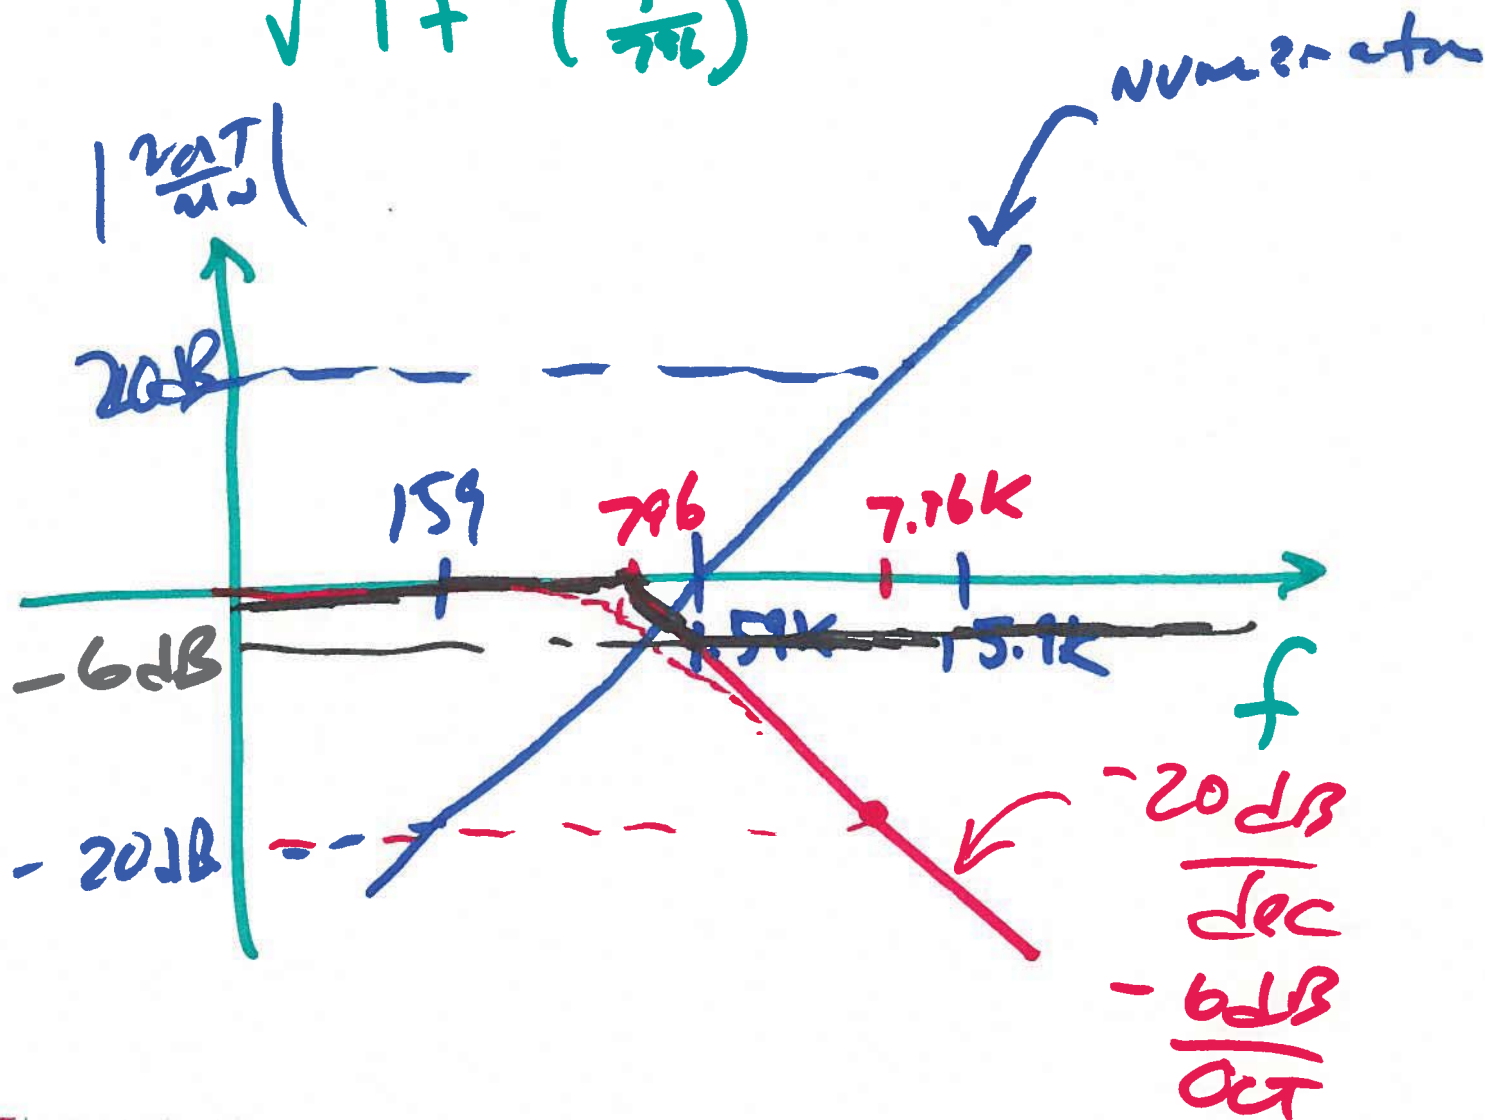 √ 1 + (f/796)
Numerator
|vout/vin|
20dB
159
796
7.96K
1.59K
15.9K
-6dB
f
-20dB
-20dB
dec
-6dB
Oct